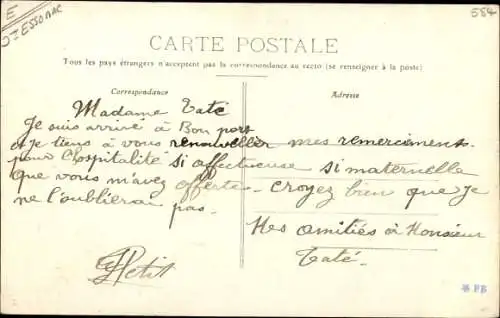 E
Dt ESSONNE
554
CARTE POSTALE
Tous les pays étrangers n'acceptent pas la correspondance au recto (se renseigner à la poste)
Correspondance
Adresse
Madame Taté
Je suis arrivé à Bon port
et je tiens à vous renouveller mes remerciments
pour l'hospitalité si affectueuse si maternelle
que vous m'avez offerte - croyez bien que je
ne l'oublierai pas -
Mes amitiés à Monsieur
Taté -
Petit
PB